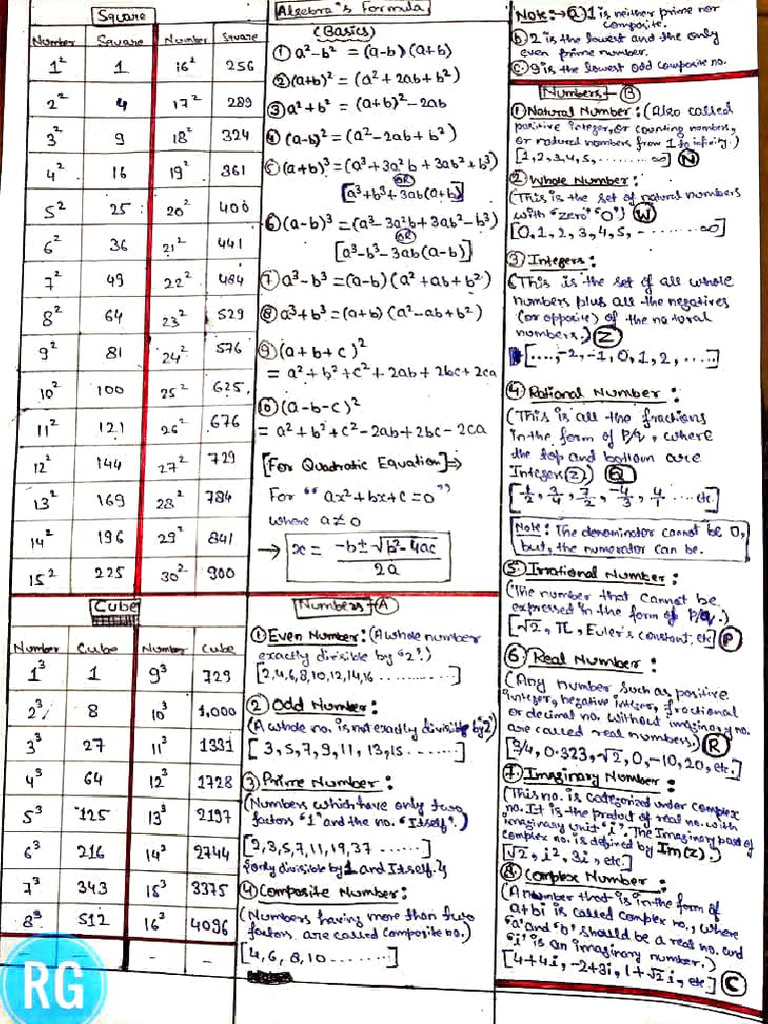 Square
Number Square Number Square
1² 1 16² 256
2² 4 17² 289
3² 9 18² 324
4² 16 19² 361
5² 25 20² 400
6² 36 21² 441
7² 49 22² 484
8² 64 23² 529
9² 81 24² 576
10² 100 25² 625
11² 121 26² 676
12² 144 27² 729
13² 169 28² 784
14² 196 29² 841
15² 225 30² 900
Cube
Number Cube Number Cube
1³ 1 9³ 729
2³ 8 10³ 1,000
3³ 27 11³ 1331
4³ 64 12³ 1728
5³ 125 13³ 2197
6³ 216 14³ 2744
7³ 343 15³ 3375
8³ 512 16³ 4096
- - -
RG
Algebra's Formula
(Basics)
① a²-b² = (a-b)(a+b)
② (a+b)² = (a²+2ab+b²)
③ a²+b² = (a+b)²-2ab
④ (a-b)² = (a²-2ab+b²)
⑤ (a+b)³ = (a³+3a²b+3ab²+b³)
OR
[a³+b³+3ab(a+b)]
⑥ (a-b)³ = (a³-3a²b+3ab²-b³)
OR
[a³-b³-3ab(a-b)]
⑦ a³-b³ = (a-b)(a²+ab+b²)
⑧ a³+b³ = (a+b)(a²-ab+b²)
⑨ (a+b+c)²
= a²+b²+c²+2ab+2bc+2ca
⑩ (a-b-c)²
= a²+b²+c²-2ab+2bc-2ca
[For Quadratic Equation]⇒
For "ax²+bx+c=0"
where a≠0
→ x = -b±√b²-4ac
2a
Numbers-Ⓐ
① Even Number: (A whole number
exactly divisible by "2".)
[2,4,6,8,10,12,14,16.........]
② Odd Number:
(A whole no. is not exactly divisible "2")
[3,5,7,9,11,13,15.......]
③ Prime Number:
(Numbers which have only two
factors "1" and the no. "Itself".)
[2,3,5,7,11,19,37......]
{only divisible by 1 and Itself.}
④ Composite Number:
(Numbers having more than two
factors are called Composite no.)
[4,6,8,10........]
Note:→ ⓐ 1 is neither prime nor
composite.
ⓑ 2 is the lowest and the only
even prime number.
ⓒ 9 is the lowest odd composite no.
Numbers-Ⓑ
① Natural Number: (Also called
positive integer, or counting numbers,
or natural numbers from 1 to infinity.)
[1,2,3,4,5,........∞] Ⓝ
② Whole Number:
(This is the set of natural numbers
with "zero" "0") Ⓦ
[0,1,2,3,4,5,-.......∞]
③ Integers:
(This is the set of all whole
numbers plus all the negatives
(or opposite) of the natural
numbers.) Ⓩ
[....,-2,-1,0,1,2,.....]
④ Rational Number:
(This is all the fractions
in the form of P/q, where
the top and bottom are
Integer(Z).) Ⓠ
[-1/2, 3/4, 7/2, -4/3, 4/1 ....etc.]
Note: The denominator cannot be 0,
but, the numerator can be.
⑤ Irrational Number:
(The number that cannot be
expressed in the form of P/q.)
[√2, π, Euler's constant, etc] Ⓟ
⑥ Real Number:
(Any Number such as positive
integer, negative integer, fractional
or decimal no. without imaginary no.
are called real numbers.) Ⓡ
[3/4, 0.323, √2, 0, -10, 20, etc.]
⑦ Imaginary Number:
(This no. is categorized under complex
no. It is the product of real no. with
imaginary unit "i". The Imaginary part of
complex no. is defined by Im(Z).)
[√2, i², 3i, etc.]
⑧ Complex Number:
(A number that is in the form of
a+bi is called complex no., where
'a' and 'b' should be a real no. and
"i" is an imaginary number.)
[4+4i, -2+3i, 1+√2i, etc] Ⓒ